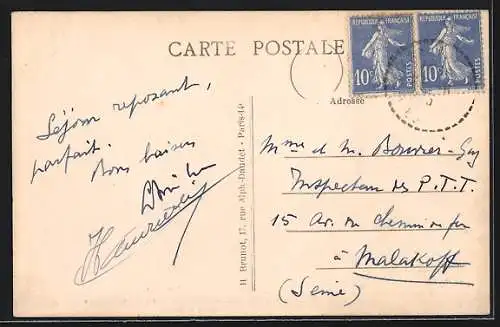 CARTE POSTALE
REPUBLIQUE FRANÇAISE
10c
POSTES
REPUBLIQUE FRANÇAISE
10c
POSTES
Adresse
Séjour reposant,
parfait.
Bons baisers
H Brunot, 17, rue Alph-Daudet - Paris-14e
Mme et M. Bouvier-Gay
Inspecteur des P.T.T.
15 Av. du Chemin de fer
à Malakoff
(Seine)